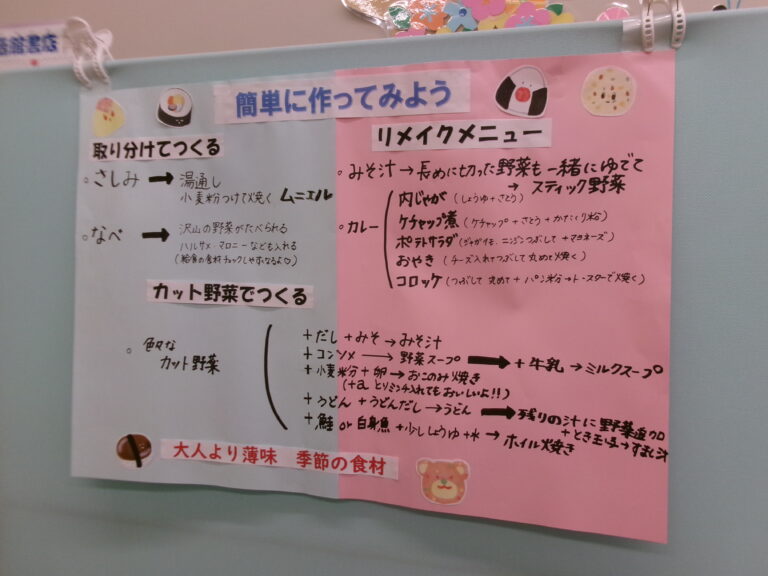 簡単に作ってみよう
取り分けてつくる
。さしみ → 湯通し
小麦粉つけて焼く ムニエル
。なべ → 沢山の野菜がたべられる
ハルサメ・マロニーなども入れる
(給食の食材チェックしやすくなるよ♡)
リメイクメニュー
。みそ汁 → 長めに切った野菜も一緒にゆでて
→ スティック野菜
。カレー
肉じゃが (しょうゆ+さとう)
ケチャップ煮 (ケチャップ+さとう+かたくり粉)
ポテトサラダ (ジャガイモ、ニンジンつぶして+マヨネーズ)
おやき (チーズ入れてつぶして丸めて焼く)
コロッケ (つぶして丸めて+パン粉→トースターで焼く)
カット野菜でつくる
。色々なカット野菜
+だし+みそ→みそ汁
+コンソメ → 野菜スープ → +牛乳→ミルクスープ
+小麦粉+卵→おこのみ焼き
(+α とりミンチ入れてもおいしいよ!!)
+うどん+うどんだし→うどん → 残りの汁に野菜追加
+とき玉子→すまし汁
+鮭 or 白身魚+少ししょうゆ+水→ホイル焼き
大人より薄味 季節の食材
書店